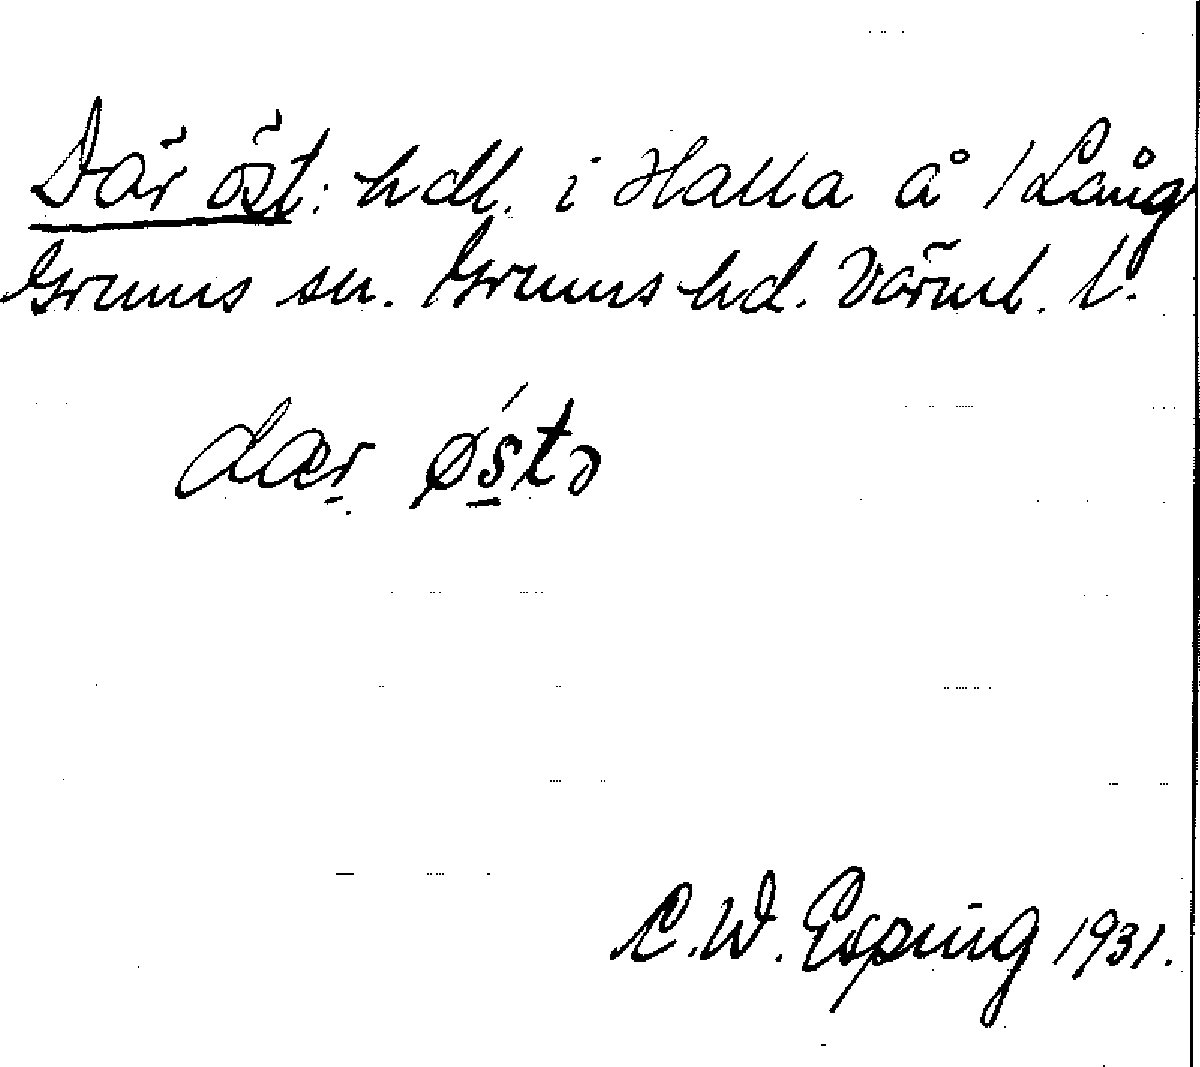 Där öst: hdl. i Halla å 1 Lång
Grums sn. Grums hd. Värml. l.
dær østə
C. W. Esping 1931.